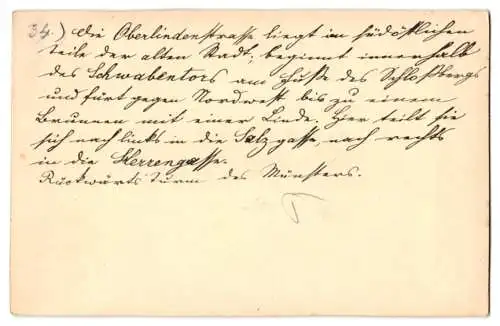 34.) Die Oberlindenstrasse liegt im südöstlichen
teile der alten Stadt; beginnt innerhalb
des Schwabentors am Fuße des Schloßbergs
und fürt gegen Nordwest bis zu einem
Brunnen mit einer Linde. Hier teilt sie
sich nach links in die Salzgasse, nach rechts
in die Herrengasse.
Rückwärts Turm des Münsters.